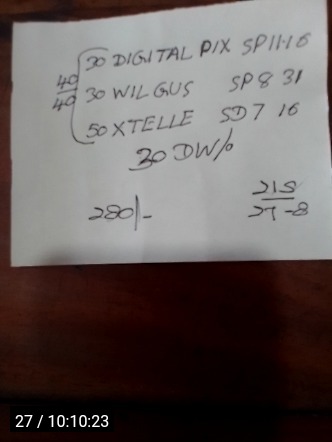 40
40
30 DIGITAL PIX SP11-16
30 WILGUS SP 8 31
50 XTELLE SD 7 16
30 DW/o
280/-
215
27-8
27 / 10:10:23